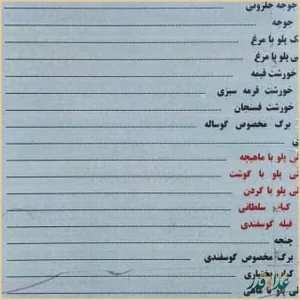 جوجه حلزونی
جوجه
ک پلو با مرغ
ی پلو با مرغ
خورشت قیمه
خورشت قرمه سبزی
خورشت فسنجان
برگ مخصوص گوساله
ی
ی پلو با ماهیچه
ی پلو با گوشت
ی پلو با گردن
کباب سلطانی
فیله گوسفندی
چنجه
برگ مخصوص گوسفندی
کباب بختیاری
ی پلو با ماهی